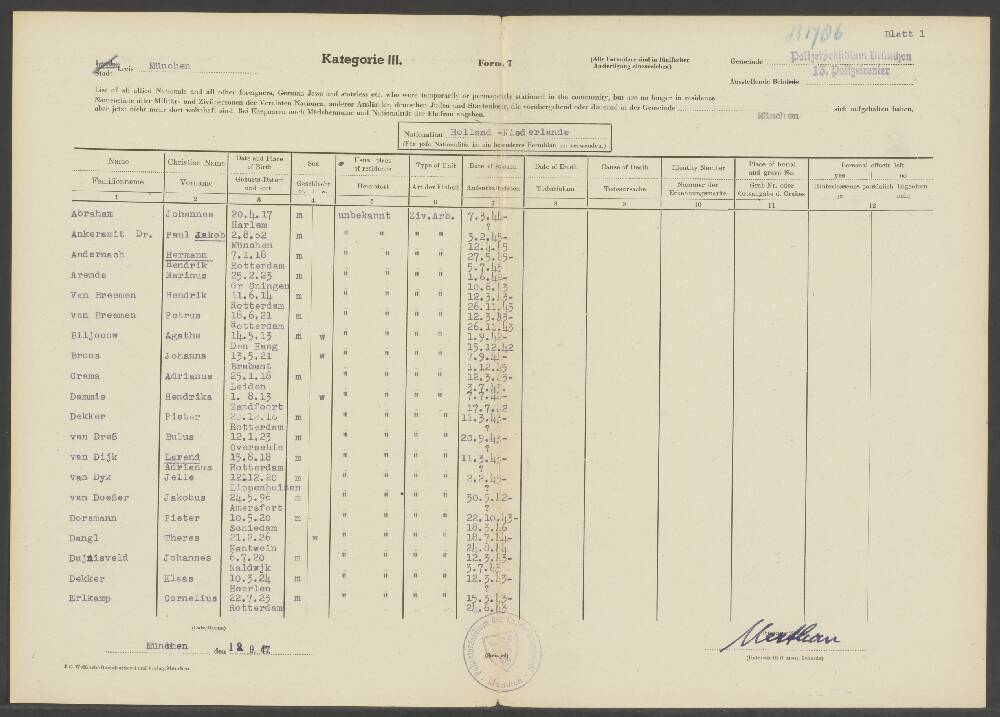 Blatt 1
Kategorie III.
Form. 7
(Alle Formulare sind in fünffacher Ausfertigung einzureichen)
Stadt kreis München
Gemeinde Polizeipräsidium München
Ausstellende Behörde 13. Polizeirevier
List of all allied Nationals and all other foreigners, German Jews and stateless etc. who were temporarily or permanently stationed in the community, but are no longer in residence.
Namensliste aller Militär- und Zivilpersonen der Vereinten Nationen, anderer Ausländer, deutscher Juden und Staatenloser, die vorübergehend oder dauernd in der Gemeinde München sich aufgehalten haben,
aber jetzt nicht mehr dort wohnhaft sind. Bei Ehepaaren auch Mädchenname und Nationalität der Ehefrau angeben.
Nationalität Holland -Niederlande
(Für jede Nationalität ist ein besonderes Formblatt zu verwenden.)
Name Christian Name Date and Place of Birth Sex Usual place of residence Type of Unit Date of Date of Death Cause of Death Identity Number Place of burial and grave No. Personal effects left yes no
Familienname Vorname Geburts-Datum und -ort Geschlecht m. w. Heimatort Art der Einheit Aufenthaltsdaten Todesdatum Todesursache Nummer der Erkennungsmarke Grab Nr. oder Ortsangabe d. Grabes Hinterlassenes persönlich. Eigentum ja nein
1 2 3 4 5 6 7 8 9 10 11 12
Abraham Johannes 20.4.17 m unbekannt Ziv.Arb. 7.3.44-
Harlem ?
Ankersmit Dr. Paul Jakob 2.8.02 m " " " " 3.2.45-
München 12.4.45
Andernach Hermann 7.1.18 m " " " " 27.5.45-
Hendrik Rotterdam 5.7.43
Arends Marinus 25.2.23 m " " " " 1.6.42-
Gr öningen 10.6.43
Van Breemen Hendrik 11.6.14 m " " " " 12.3.43-
Rotterdam 26.11.43
van Breemen Petrus 18.6.21 m " " " " 12.3.43-
Rotterdam 26.11.43
Biljoouw Agathe 14.5.13 w " " " " 1.9.42-
Den Haag 15.12.42
Broos Johanna 13.5.21 w " " " " 7.9.44-
Brabant 1.12.43
Crama Adrianus 25.1.18 m " " " " 12.3.43-
Leiden 3.7.43
Dammis Hendrika 1. 8.13 w " " " " 7.7.42-
Zandfoort 17.7.42
Dekker Pieter m " " " " 11.3.43-
Rotterdam ?
van Dreß Bulus 12.1.23 m " " " " 20.9.43-
Overschie ?
van Dijk Larend 15.8.18 m " " " " 11.3.43-
Adrianus Rotterdam ?
van Dyk Jelle 12.12.20 m " " " " 2.2.43-
Lippenhuizen ?
van Doeßer Jakobus 24.5.96 m " " " " 30.5.42-
Amersfort ?
Dorsmann Pieter 10.5.20 m " " " " 22.10.43-
Schiedam 18.3.46
Dangl Theres 21.2.26 w " " " " 18.7.44-
Nantwein 24.8.44
Dujnisveld Johannes 6.7.20 m " " " " 12.3.43-
Naldwjk 3.7.43
Dekker Klaas 10.3.24 m " " " " 12.3.43-
Heerlen ?
Erlkamp Cornelius 22.7.23 m " " " " 15.3.43-
Rotterdam 24.6.43
(Date/Datum)
München den 12 9. 47
(Siegel)
München
(Unterschrift d. ausst. Behörde)